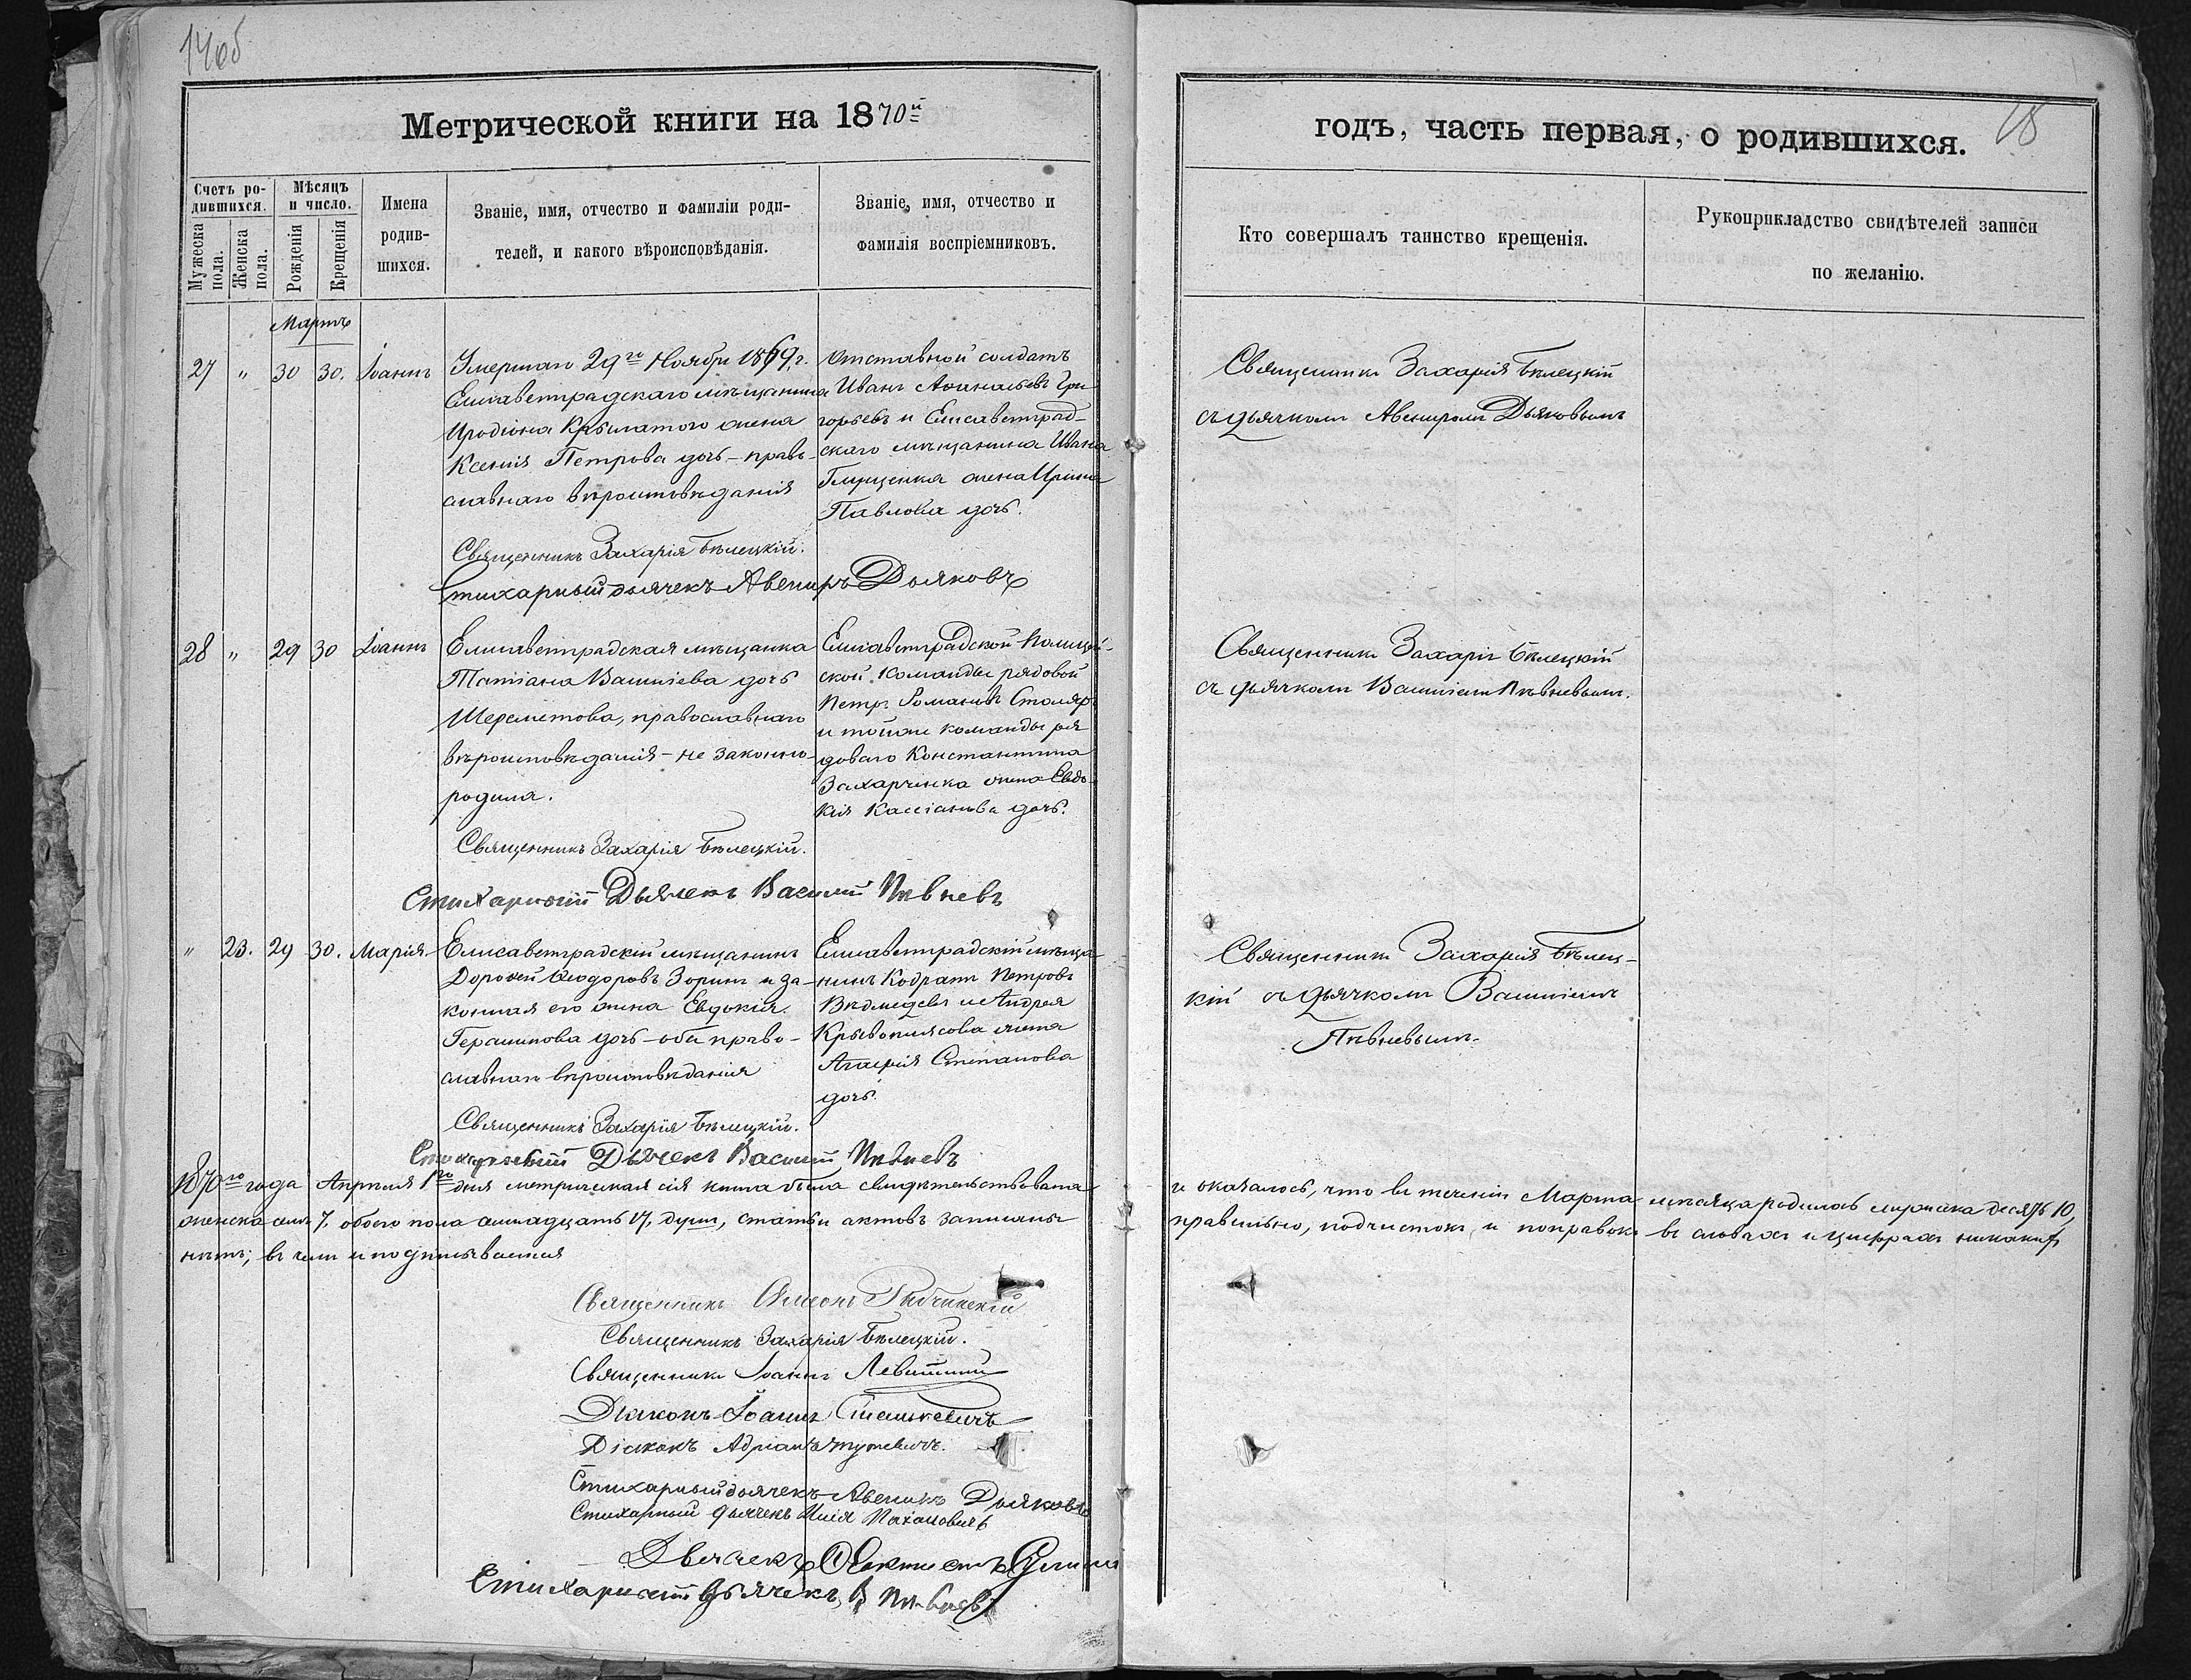 14об
Метрической книги на 1870й
Счетъ ро-
дившихся.
Мужеска пола.
Женска пола.
Мѣсяцъ
и число.
Рожденія
Крещенія
Имена
родив-
шихся.
Званіе, имя, отчество и фамиліи роди-
телей, и какого вѣроисповѣданія.
Званіе, имя, отчество и
фамилія воспріемниковъ.
Мартъ
27 " 30 30. Іоаннъ
Умершаго 29го Ноября 1869 г.
Елисаветградскаго мѣщанина
Иродіона Крылатого жена
Ксенія Петрова дочь - право-
славнаго вѣроисповѣданія
Отставной солдатъ
Иванъ Аѳанасьевъ Гри-
горьевъ и Елисаветград-
скаго мѣщанина Ивана
Глущенка жена Ирина
Павлова дочь.
Священникъ Захарія Бѣлецкій.
Стихарный дьячекъ Авениръ Дьяковъ
28 " 29 30 Іоаннъ
Елисаветградская мѣщанка
Татіана Василіева дочь
Шереметова, православнаго
вѣроисповѣданія - не законно
родила.
Елисаветградской Полицей-
ской команды рядовой
Петръ Романовъ Столяръ
и тойже команды ря
доваго Константина
Захарченка жена Евдо-
кія Кассіанова дочь.
Священникъ Захарія Бѣлецкій.
Стихарный Дьячекъ Василій Пѣвневъ
" 23. 29 30. Марія
Елисаветградскій мѣщанинъ
Дороѳей Ѳеодоровъ Зоринъ и за-
конная его жена Евдокія
Герасимова дочь - оба право-
славнаго вѣроисповѣданія
Елисаветградскій мѣща-
нинъ Кодратъ Петровъ
и Андрея
жена
Агафія Степанова
дочь.
Священникъ Захарія Бѣлецкій.
Стихарный Дьячекъ Василій Пѣвневъ
1870го года Апрѣля 1го дня метрическая сія книга была свидѣтельствована
женска семь 7. обоего пола семнадцать 17. душъ, статьи актовъ записаны
нѣтъ; въ чемъ и подписываемся
Священникъ Симеонъ
Священникъ Захарія Бѣлецкій.
Священникъ Іоаннъ Левитскій
Діаконъ Іоаннъ
Діаконъ Адріанъ
Стихарный дьячекъ Авениръ Дьяковъ
Стихарный дьячекъ Илія
Дьячекъ Ѳеоктистъ
Стихарный Дьячекъ В Пѣвневъ
годъ, часть первая, о родившихся.
Кто совершалъ таинство крещенія.
Рукоприкладство свидѣтелей записи
по желанію.
Священникъ Захарія Бѣлецкій
съ дьячкомъ Авениромъ Дьяковымъ
Священникъ Захарія Бѣлецкій
съ дьячкомъ Василіемъ Пѣвневымъ.
Священникъ Захарія Бѣлец-
кій съ дьячкомъ Василіемъ
Пѣвневымъ.
и оказалось, что въ теченіи Марта мѣсяца родилось мужеска десять 10,
правильно, подчистокъ и поправокъ въ словахъ и цифрахъ никакихъ